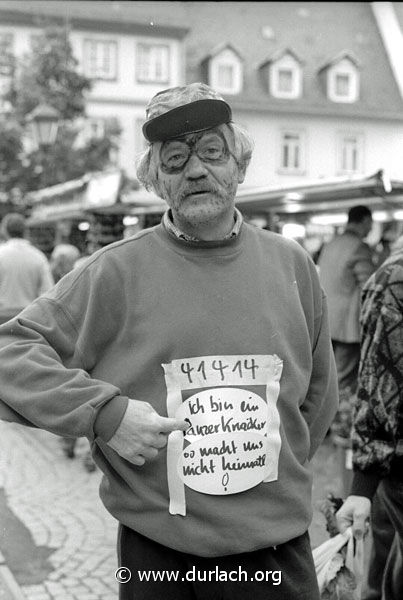 41414
Ich bin ein
Panzerknacker
macht uns
nicht heimatl
!
© www.durlach.org